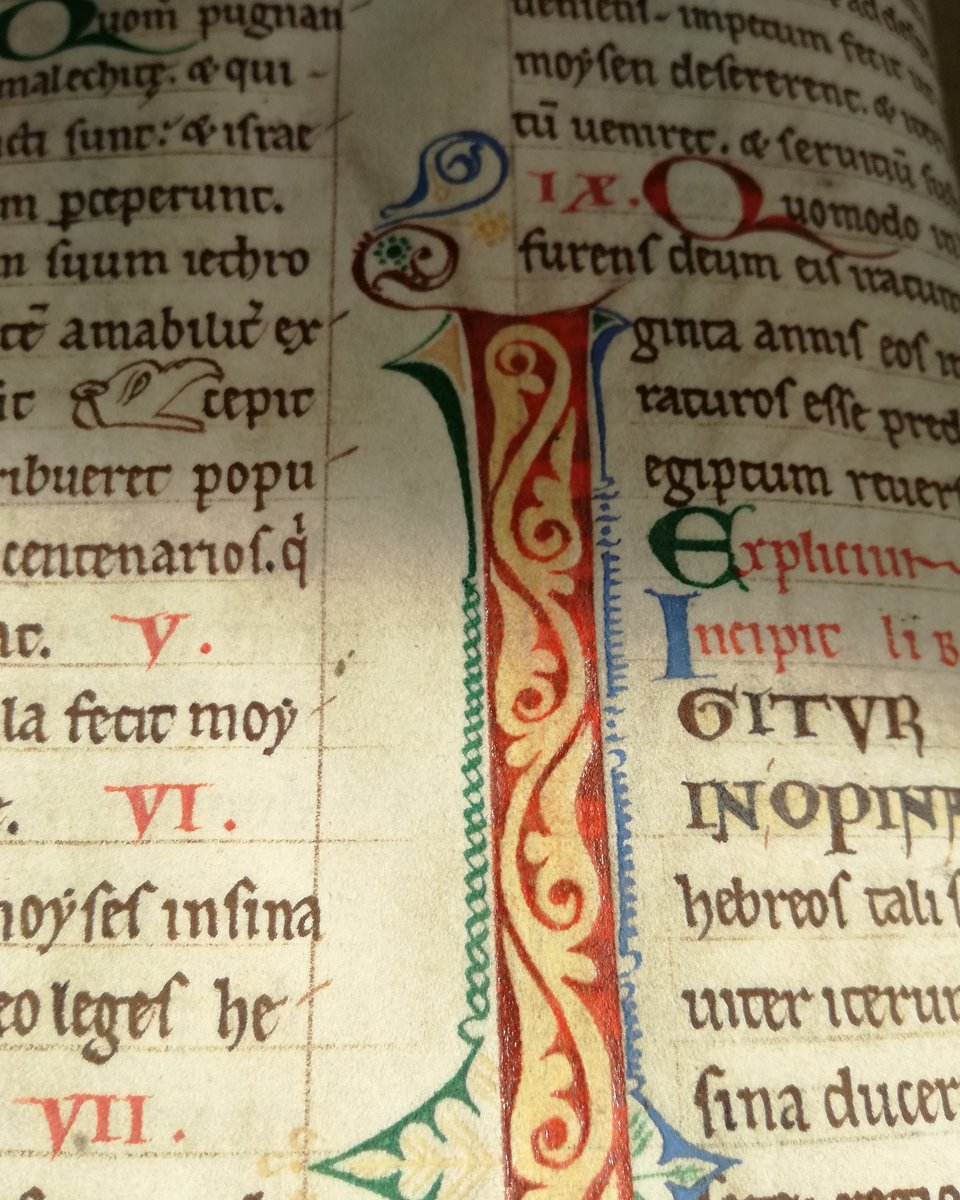 Quom̄ pugnan
malechitę. & qui
cti sunt: & israe
m p̲ceperunt.
m suum iethro
cē amabilit᷑ ex
it cepit
ribueret popu
centenarios. qͥ
V.
la fecit moy
VI.
moyses in sina
eo leges he
VII.
uenient impetum fecit
moysen desererent. &
tū ueniret. & seruitiū
IX. Quomodo
furens deum eis iratum
ginta annis eos
raturos esse pred
egiptum reuers
Expliciunt
Incipit lib
I
GITVR
INOPINA
hebreos tali
uiter iterum
sina ducer